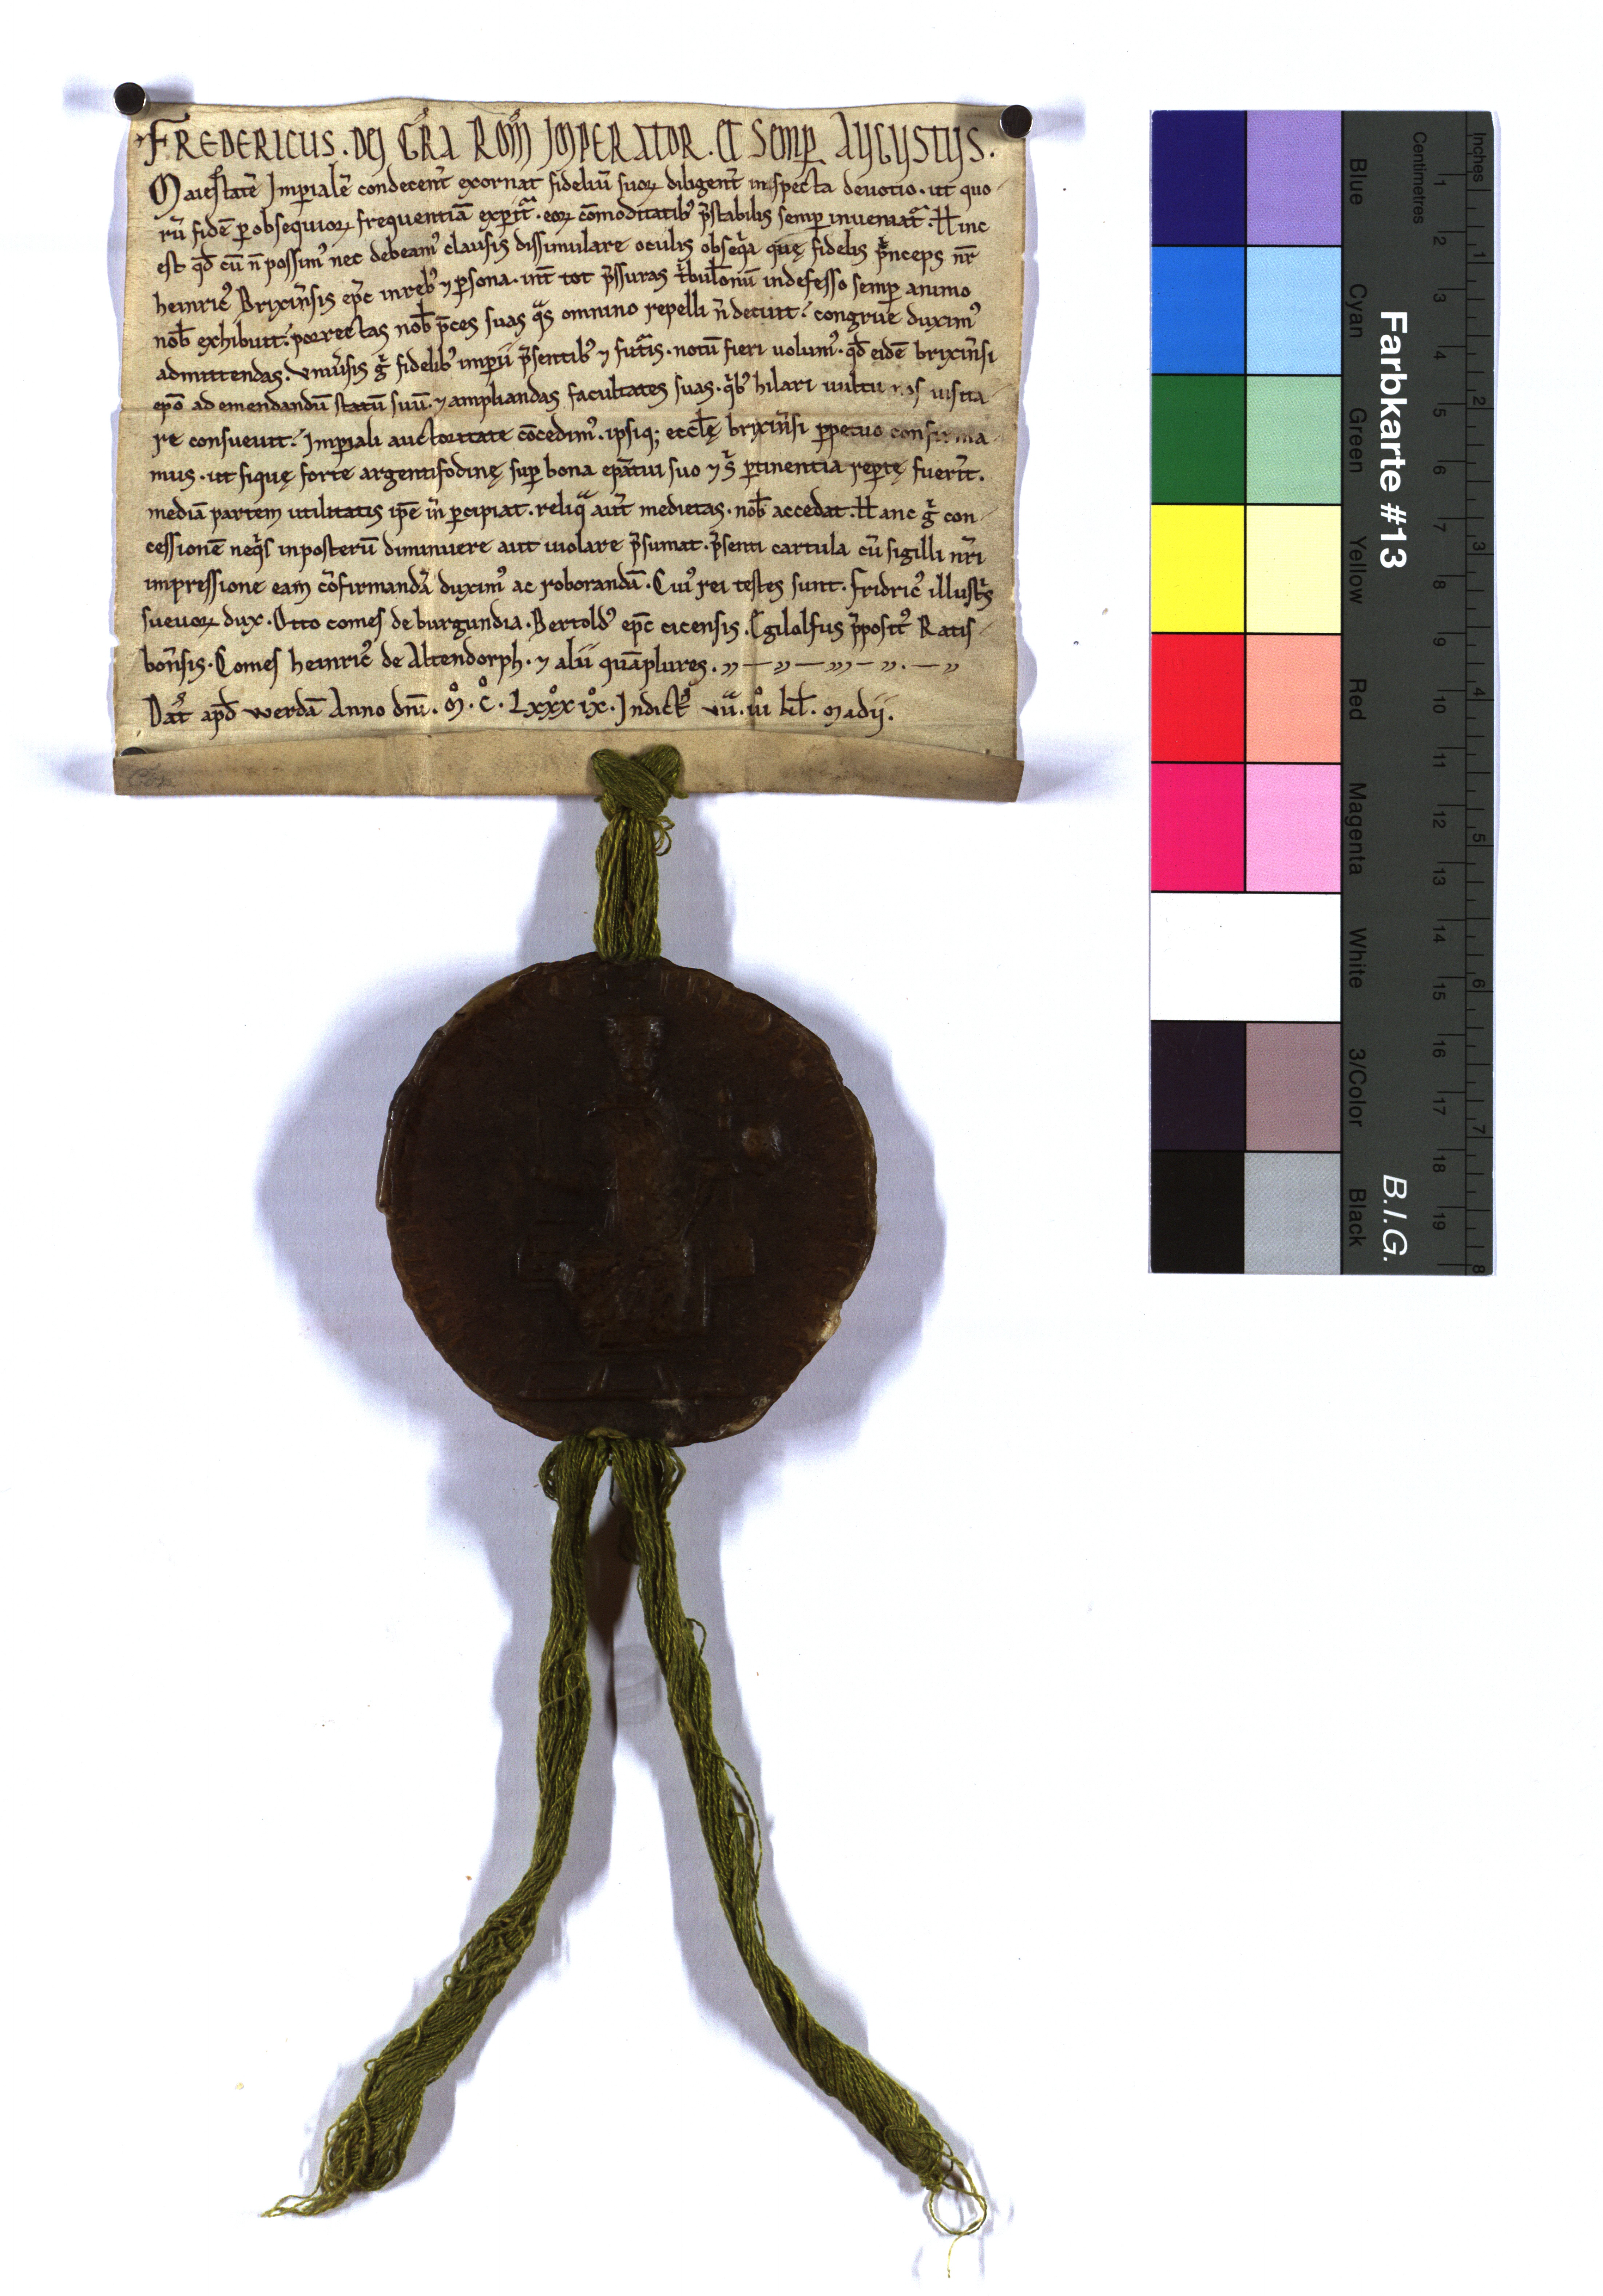 FREDERICUS. DEI GRA ROM IMPERATOR. ET SEMP AUGUSTUS.
Maiestatē Imꝑialē condecent̄ exornat fideliū suoꝝ diligent̄ inspecta deuotio. ut quo-
rū fidē ꝑ obsequioꝝ frequentiā expit̄. eoꝝ cōmoditatibꝰ p̄stabilis semꝑ inueniat̄. Hinc
est qđ cū n̄ possimꝰ nec debeamꝰ clausis dissimulare oculis obseq̄a quę fidelis p̄nceps nr̄
heinricꝰ Brixin̄sis ep̄c in rebꝰ ⁊ ꝑsona. int̄ tot p̄ssuras t̄bul̄onū indefesso semꝑ animo
nob̄ exhibuit. porrectas nob̄ p̄ces suas q̄s omnino repelli n̄ decuit. congrue duximꝰ
admittendas. Vniu̅sis g̅ fidelibꝰ imꝑii p̄sentibꝰ ⁊ fut̄is. notū fieri uolumꝰ. qđ eidē brixin̄si
ep̄o ad emendandū statū suū. ⁊ ampliandas facultates suas. q̄bꝰ hilari uultu nos uisita-
re consueuit. Imꝑiali auctoritate cōcedimꝰ. ipsiq; eccl̄ę brixin̄si ꝑpetuo confirma-
mus. ut siquę forte argentifodinę suꝑ bona ep̄atui suo ⁊ s̄ ꝑtinentia reꝑtę fuerīt.
mediā partem utilitatis ip̄e in̄ ꝑcipiat. reliq̄ aut̄ medietas. nob̄ accedat. Hanc g̅ con-
cessionē neq̄s inposterū diminuere aut uiolare p̄sumat. p̄senti cartula cū sigilli nr̄i
impressione eam cōfirmandā duximꝰ ac roborandā. Cuiꝰ rei testes sunt. Fridricꝰ illust̄s
sueuoꝝ dux. Otto comes de burgundia. Bertoldꝰ ep̄c cicensis. Egilolfus p̄positꝰ Ratis-
bon̄sis. Comes heinricꝰ de Altendorph. ⁊ alii quāplures.
Dat̄ apđ werdā Anno dn̄i. M̊. C̊. Lxxxix̊. Indict̄ vii. iii kl̄. Madii.
Farbkarte #13
B.I.G.
Inches
Centimetres
1 2 3 4 5 6 7 8 9 10 11 12 13 14 15 16 17 18 19
1 2 3 4 5 6 7 8
Blue
Cyan
Green
Yellow
Red
Magenta
White
3/Color
Black